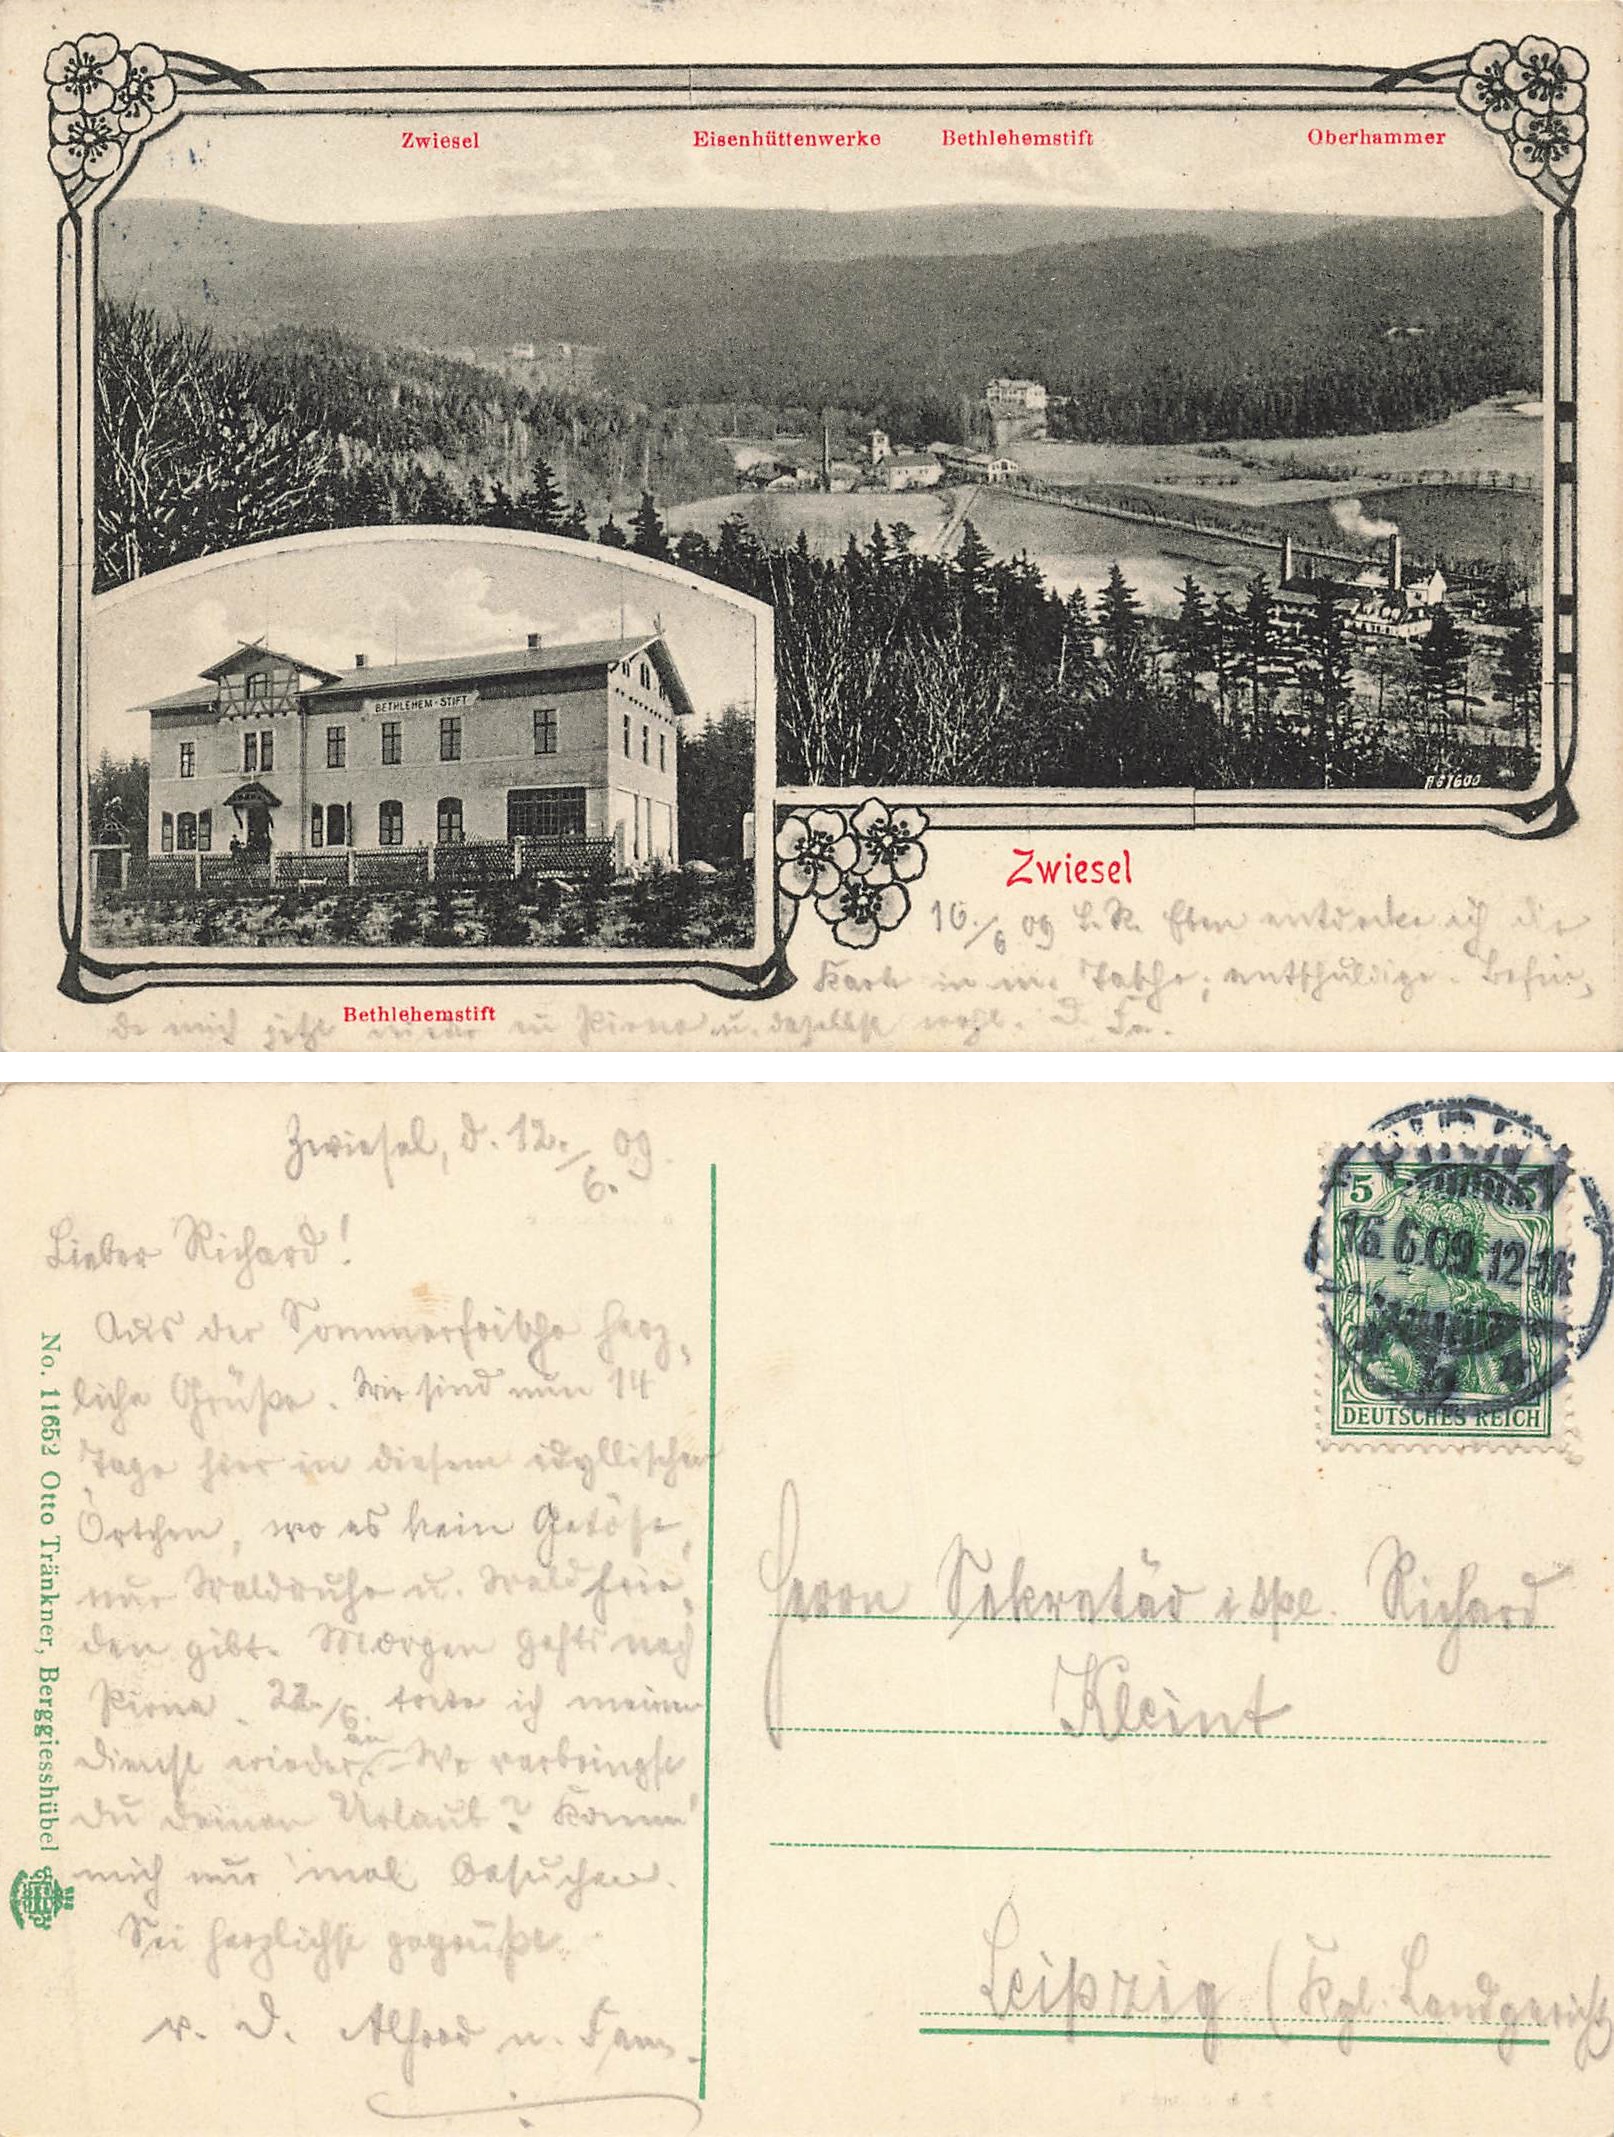 Zwiesel Eisenhüttenwerke Bethlehemstift Oberhammer
BETHLEHEM-STIFT
Zwiesel
16./6 09 L. R. Eben entdecke ich die
Karte in m. Tasche; entschuldige. Befin-
Bethlehemstift
de mich jetzt in Pirna u. daselbst wohl. D.
Zwiesel, d. 12./6. 09.
Lieber Richard!
Aus der Sommerfrische herz-
liche Grüße. Wir sind nun 14
Tage hier in diesem idyllischen
Örtchen, wo es kein Getöse,
nur Waldruhe u. Waldfrie-
den gibt. Morgen gehts nach
Pirna. 22./6. trete ich meinen
Dienst wieder an. Wo verbringst
Du Deinen Urlaub? Komm'
mich nur 'mal besuchen.
Sei herzlichst gegrüßt
v. D. Alfred u. Fam.
No. 11652 Otto Tränkner, Berggiesshübel
5 5
16.6.09.12-1N
DEUTSCHES REICH
Herrn Sekretär Richard
Kleint
Leipzig (Kgl. Landgericht